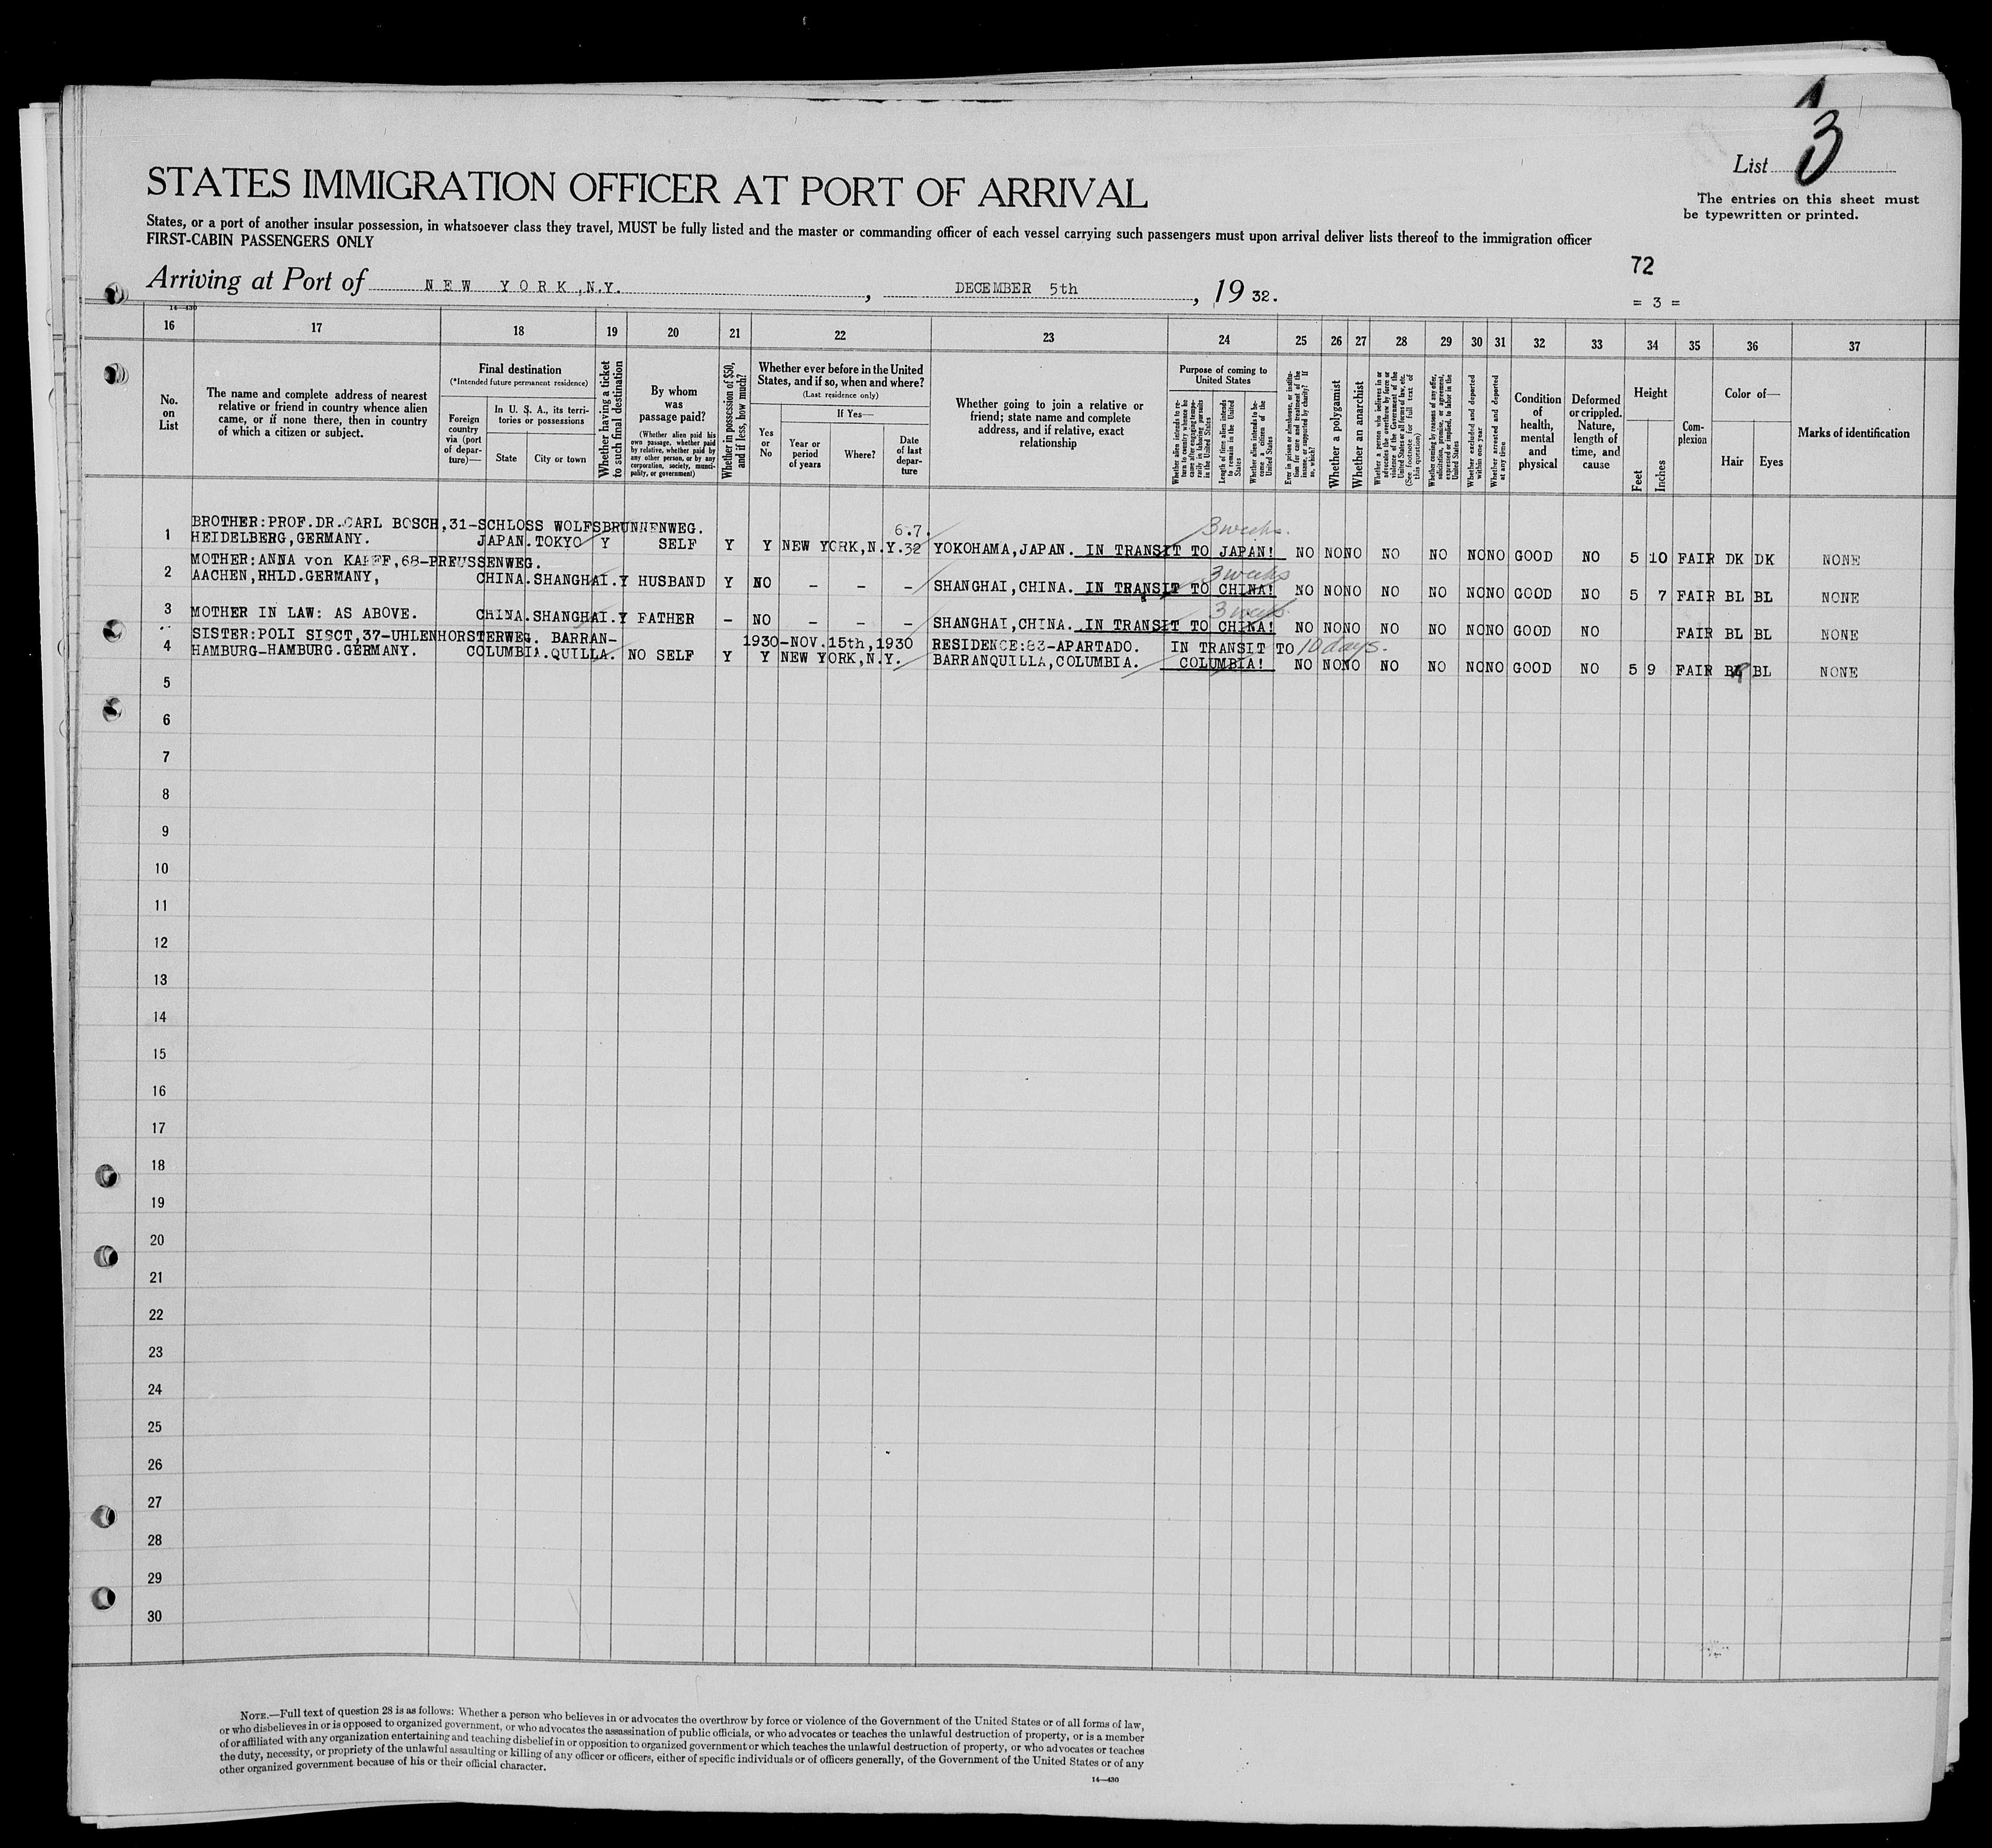 3
List
The entries on this sheet must
be typewritten or printed.
STATES IMMIGRATION OFFICER AT PORT OF ARRIVAL
States, or a port of another insular possession, in whatsoever class they travel, MUST be fully listed and the master or commanding officer of each vessel carrying such passengers must upon arrival deliver lists thereof to the immigration officer
FIRST-CABIN PASSENGERS ONLY
72
Arriving at Port of NEW YORK,N.Y. , DECEMBER 5th , 19 32.
= 3 =
14—430
16 17 18 19 20 21 22 23 24 25 26 27 28 29 30 31 32 33 34 35 36 37
No. on List
The name and complete address of nearest
relative or friend in country whence alien
came, or if none there, then in country
of which a citizen or subject.
Final destination
(*Intended future permanent residence)
Foreign country via (port of departure)—
In U. S. A., its territories or possessions
State
City or town
Whether having a ticket to such final destination
By whom was passage paid?
(Whether alien paid his own passage, whether paid by relative, whether paid by any other person, or by any corporation, society, municipality, or government)
Whether in possession of $50, and if less, how much?
Whether ever before in the United States, and if so, when and where?
(Last residence only)
Yes or No
If Yes—
Year or period of years
Where?
Date of last departure
Whether going to join a relative or
friend; state name and complete
address, and if relative, exact
relationship
Purpose of coming to United States
Whether alien intends to return to country whence he came after engaging temporarily in laboring pursuits in the United States
Length of time alien intends to remain in the United States
Whether alien intends to become a citizen of the United States
Ever in prison or almshouse, or institution for care and treatment of the insane, or supported by charity? If so, which?
Whether a polygamist
Whether an anarchist
Whether a person who believes in or advocates the overthrow by force or violence of the Government of the United States or all forms of law, etc. (See footnote for full text of this question)
Whether coming by reason of any offer, solicitation, promise, or agreement, expressed or implied, to labor in the United States
Whether excluded and deported within one year
Whether arrested and deported at any time
Condition of health, mental and physical
Deformed or crippled. Nature, length of time, and cause
Height
Feet
Inches
Complexion
Color of—
Hair
Eyes
Marks of identification
BROTHER:PROF.DR.CARL BOSCH,31-SCHLOSS WOLFSBRUNNENWEG. 6.7. 3 weeks.
1 HEIDELBERG,GERMANY. JAPAN.TOKYO Y SELF Y Y NEW YORK,N.Y.32 YOKOHAMA,JAPAN. IN TRANSIT TO JAPAN! NO NO NO NO NO NO NO GOOD NO 5 10 FAIR DK DK NONE
MOTHER:ANNA von KAPFF,68-PREUSSENWEG. 3 weeks
2 AACHEN,RHLD.GERMANY, CHINA.SHANGHAI.Y HUSBAND Y NO – – – SHANGHAI,CHINA. IN TRANSIT TO CHINA! NO NO NO NO NO NO NO GOOD NO 5 7 FAIR BL BL NONE
3 weeks.
3 MOTHER IN LAW: AS ABOVE. CHINA.SHANGHAI.Y FATHER – NO – – – SHANGHAI,CHINA. IN TRANSIT TO CHINA! NO NO NO NO NO NO NO GOOD NO FAIR BL BL NONE
SISTER:POLI SISCT,37-UHLENHORSTERWEG. BARRAN- 1930-NOV.15th,1930 RESIDENCE:83-APARTADO. IN TRANSIT TO 10 days.
4 HAMBURG-HAMBURG.GERMANY. COLUMBIA.QUILLA. NO SELF Y Y NEW YORK,N.Y. BARRANQUILLA,COLUMBIA. COLUMBIA! NO NO NO NO NO NO NO GOOD NO 5 9 FAIR BL NONE
5
6
7
8
9
10
11
12
13
14
15
16
17
18
19
20
21
22
23
24
25
26
27
28
29
30
NOTE.—Full text of question 28 is as follows: Whether a person who believes in or advocates the overthrow by force or violence of the Government of the United States or of all forms of law,
or who disbelieves in or is opposed to organized government, or who advocates the assassination of public officials, or who advocates or teaches the unlawful destruction of property, or is a member
of or affiliated with any organization entertaining and teaching disbelief in or opposition to organized government or which teaches the unlawful destruction of property, or who advocates or teaches
the duty, necessity, or propriety of the unlawful assaulting or killing of any officer or officers, either of specific individuals or of officers generally, of the Government of the United States or of any
other organized government because of his or their official character.
14—430